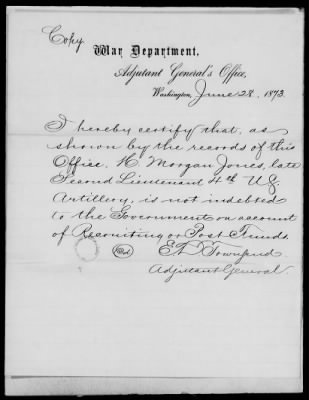 Copy
War Department,
Adjutant General's Office,
Washington, June 28, 1873.
I hereby certify that, as
shown by the records of this
Office, H. Morgan Jones, late
Second Lieutenant 4th U.S.
Artillery, is not indebted
to the Government on account
of Recruiting or Post Funds.
E. D. Townsend
Adjutant General